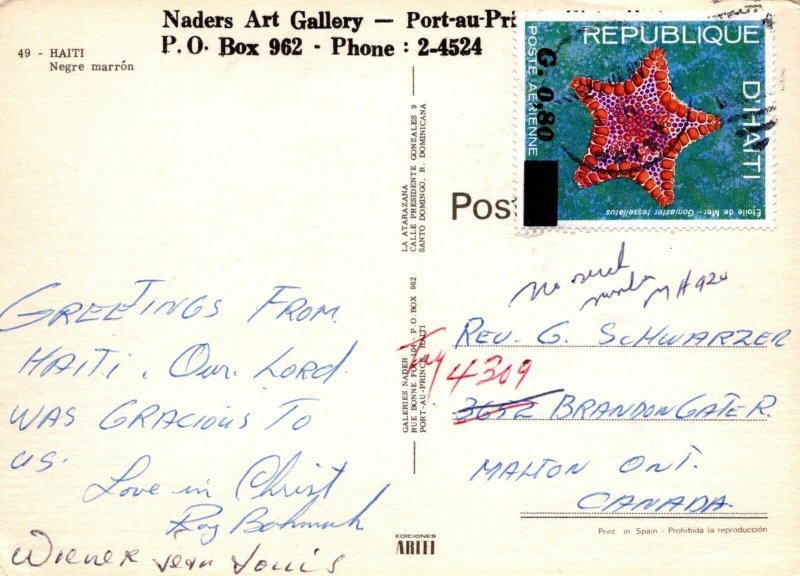 Naders Art Gallery — Port-au-Pri
P.O. Box 962 - Phone : 2-4524
49 - HAITI
Negre marrón
REPUBLIQUE
D'HAITI
POSTE AERIENNE
G. 0,80
Etoile de Mer - Goniaster tessellatus
LA ATARAZANA
CALLE PRESIDENTE GONZALES 9
SANTO DOMINGO, R. DOMINICANA
GALERIES NADER
RUE BONNE FOI 104 P. O. BOX 962
PORT-AU-PRINCE HAITI
Pos
no such
number MH920
GREETINGS FROM
HAITI. OUR LORD
WAS GRACIOUS TO
US.
Love in Christ
Roy
WIENER Jean Louis
REV. G. SCHWARZER
Try 4309
3652 BRANDONGATE R.
MALTON ONT.
CANADA
EDICIONES
ARITI
Print. in Spain - Prohibida la reproducción